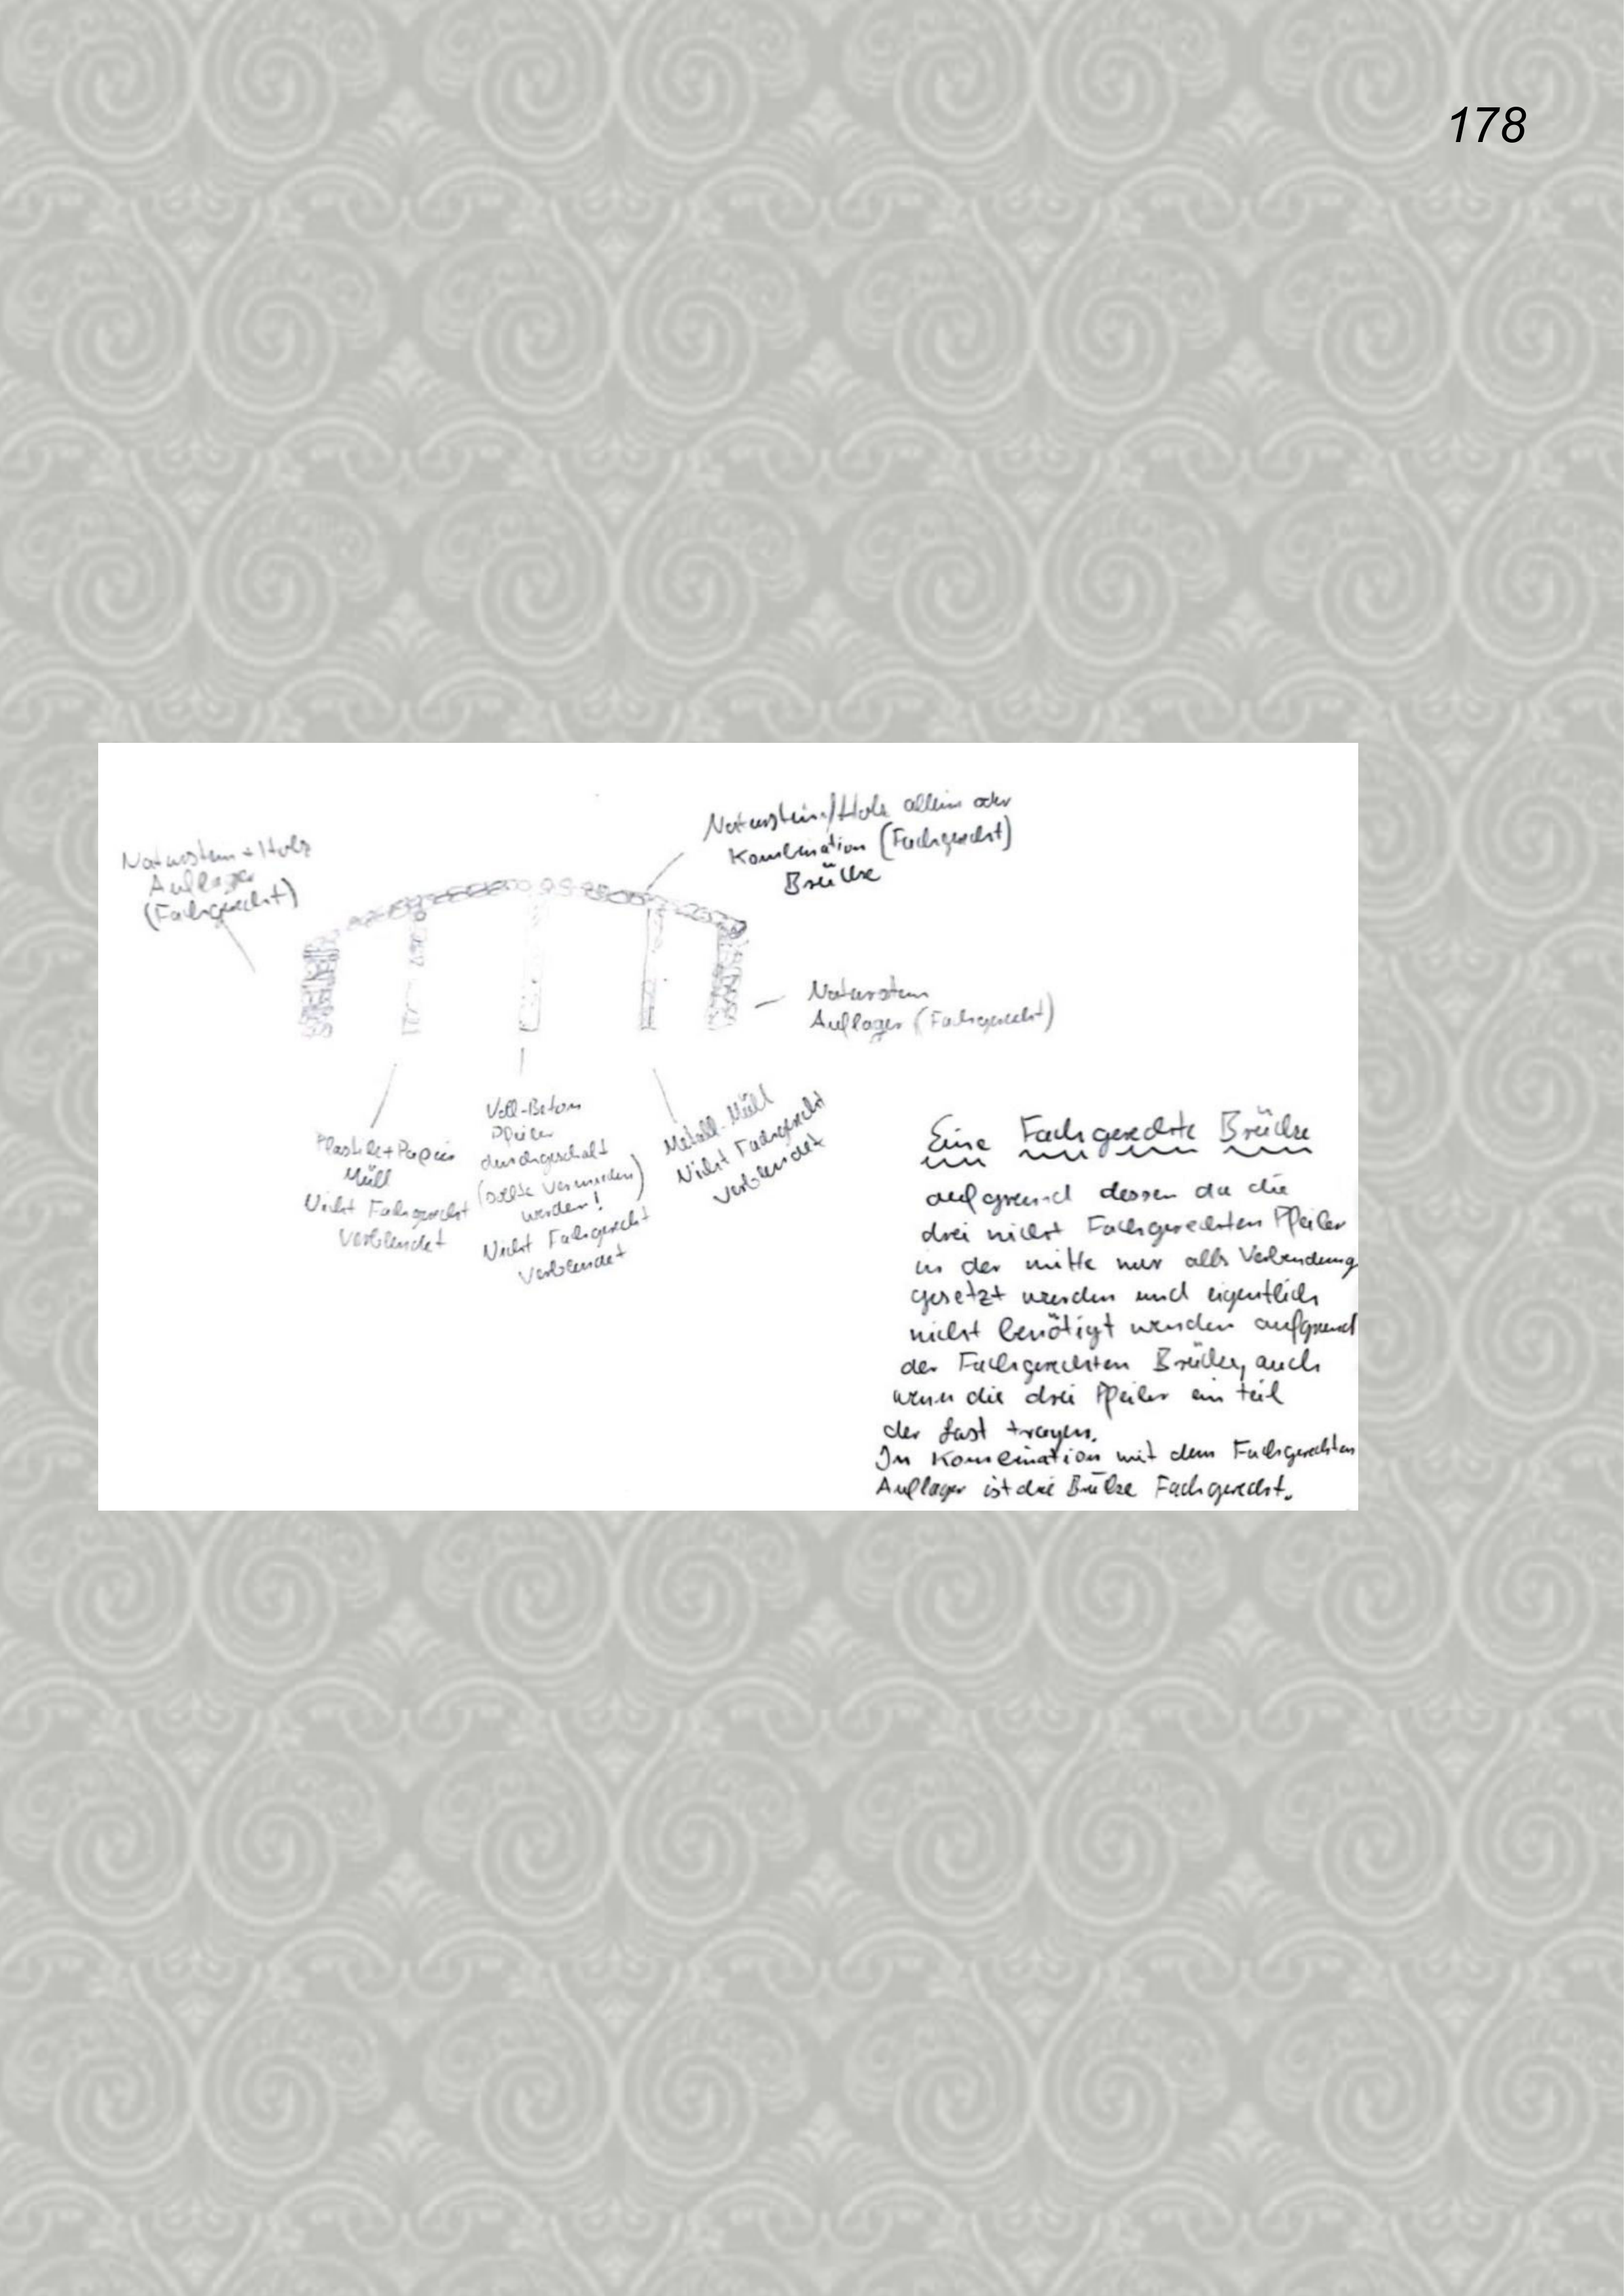 178
Naturstein/Holz allein oder
Kombination (Fachgerecht)
Brücke
Naturstein + Holz
Auflager
(Fachgerecht)
Naturstein
Auflager (Fachgerecht)
Plastik + Papier
Müll
Nicht Fachgerecht
verblendet
Voll-Beton
Pfeiler
durchgeschalt
(sollte vermieden
werden!)
Nicht Fachgerecht
verblendet
Metall-Müll
Nicht Fachgerecht
verblendet
Eine Fachgerechte Brücke
aufgrund dessen da die
drei nicht Fachgerechten Pfeiler
in der mitte nur alls Verbindung
gesetzt wurden und eigentlich
nicht benötigt werden aufgrund
der Fachgerechten Brücke, auch
wenn die drei Pfeiler ein teil
der Last tragen.
In Kombination mit dem Fachgerechten
Auflager ist die Brücke Fachgerecht.